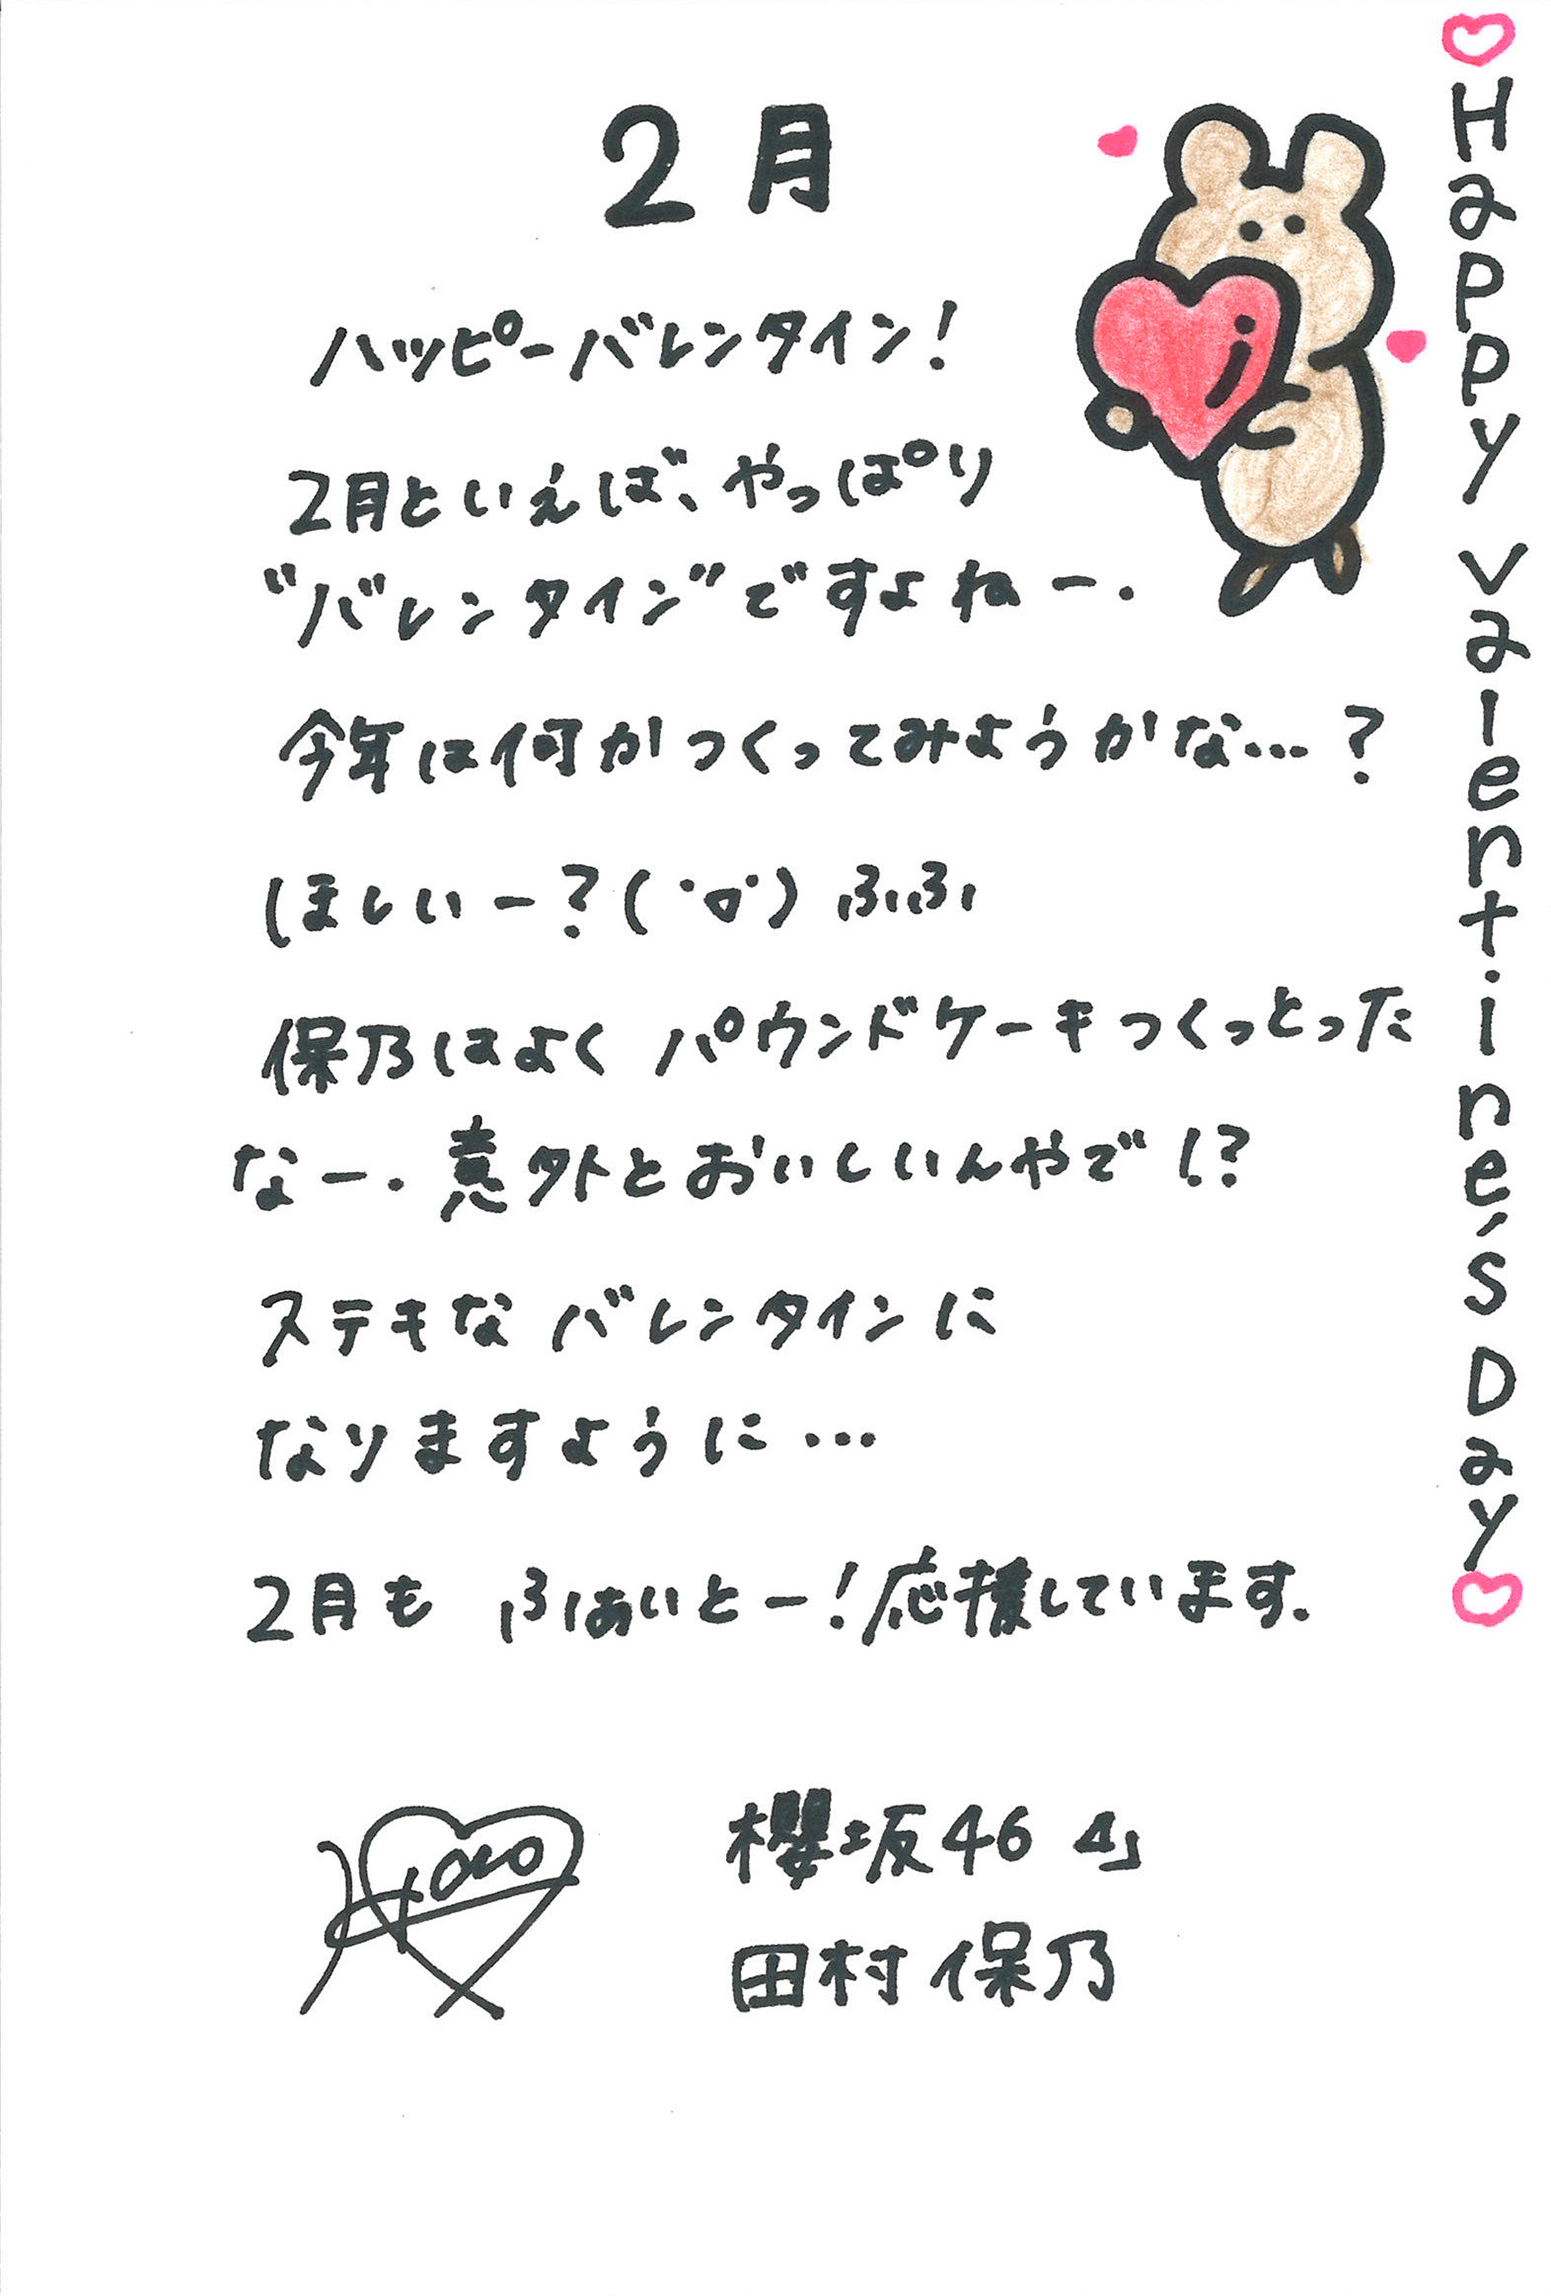 2月
ハッピーバレンタイン!
2月といえば、やっぱり
“バレンタイン”ですよねー.
今年は何かつくってみようかな…?
ほしいー?(˙▿˙)ふふ
保乃はよく パウンドケーキつくっとった
なー.意外とおいしいんやで!?
ステキなバレンタインに
なりますように…
2月も ふぁいとー!応援しています.
櫻坂46
田村保乃
♡Happy valentine's Day♡